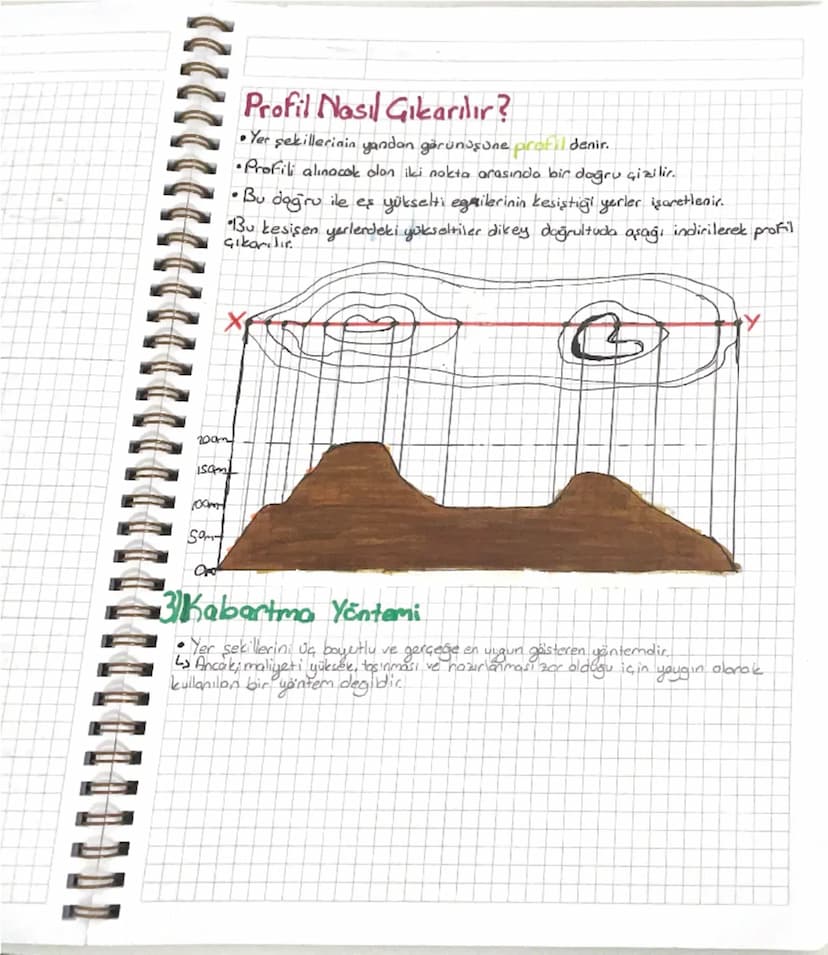 Profil Nasıl Çıkarılır?
• Yer şekillerinin yandan görünüşüne profil denir.
• Profili alınacak olan iki nokta arasında bir doğru çizilir.
• Bu doğru ile eş yükselti eğrilerinin kesiştiği yerler işaretlenir.
• Bu kesişen yerlerdeki yükseltiler dikey doğrultuda aşağı indirilerek profil
çıkarılır.
X Y
200m
150m
100m
50m
0m
3) Kabartma Yöntemi
• Yer şekillerini üç boyutlu ve gerçeğe en uygun gösteren yöntemdir.
↳ Ancak; maliyeti yüksek, taşınması ve hazırlanması zor olduğu için yaygın olarak
kullanılan bir yöntem değildir.